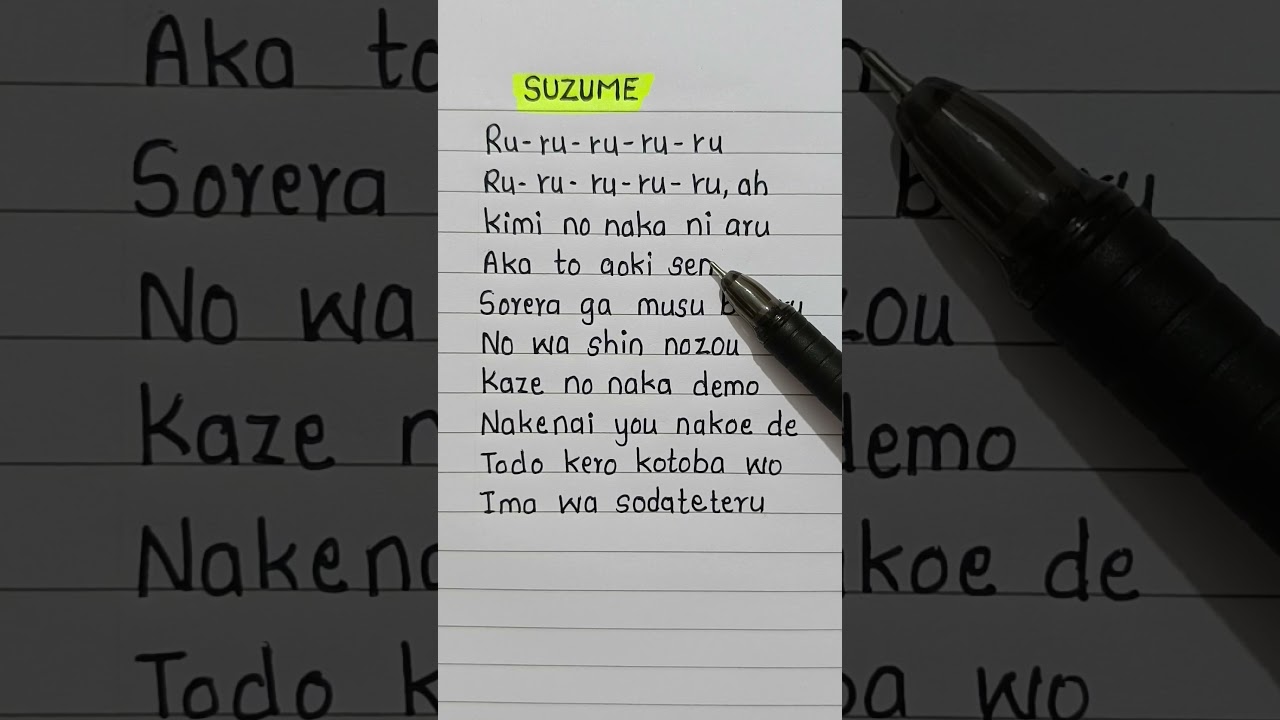 SUZUME
Ru-ru-ru-ru-ru
Ru-ru-ru-ru-ru, ah
Kimi no naka ni aru
Aka to aoki sen
Sorera ga musu
No wa shin nozou
Kaze no naka demo
Nakenai you nakoe de
Todo kero kotoba wo
Ima wa sodateteru